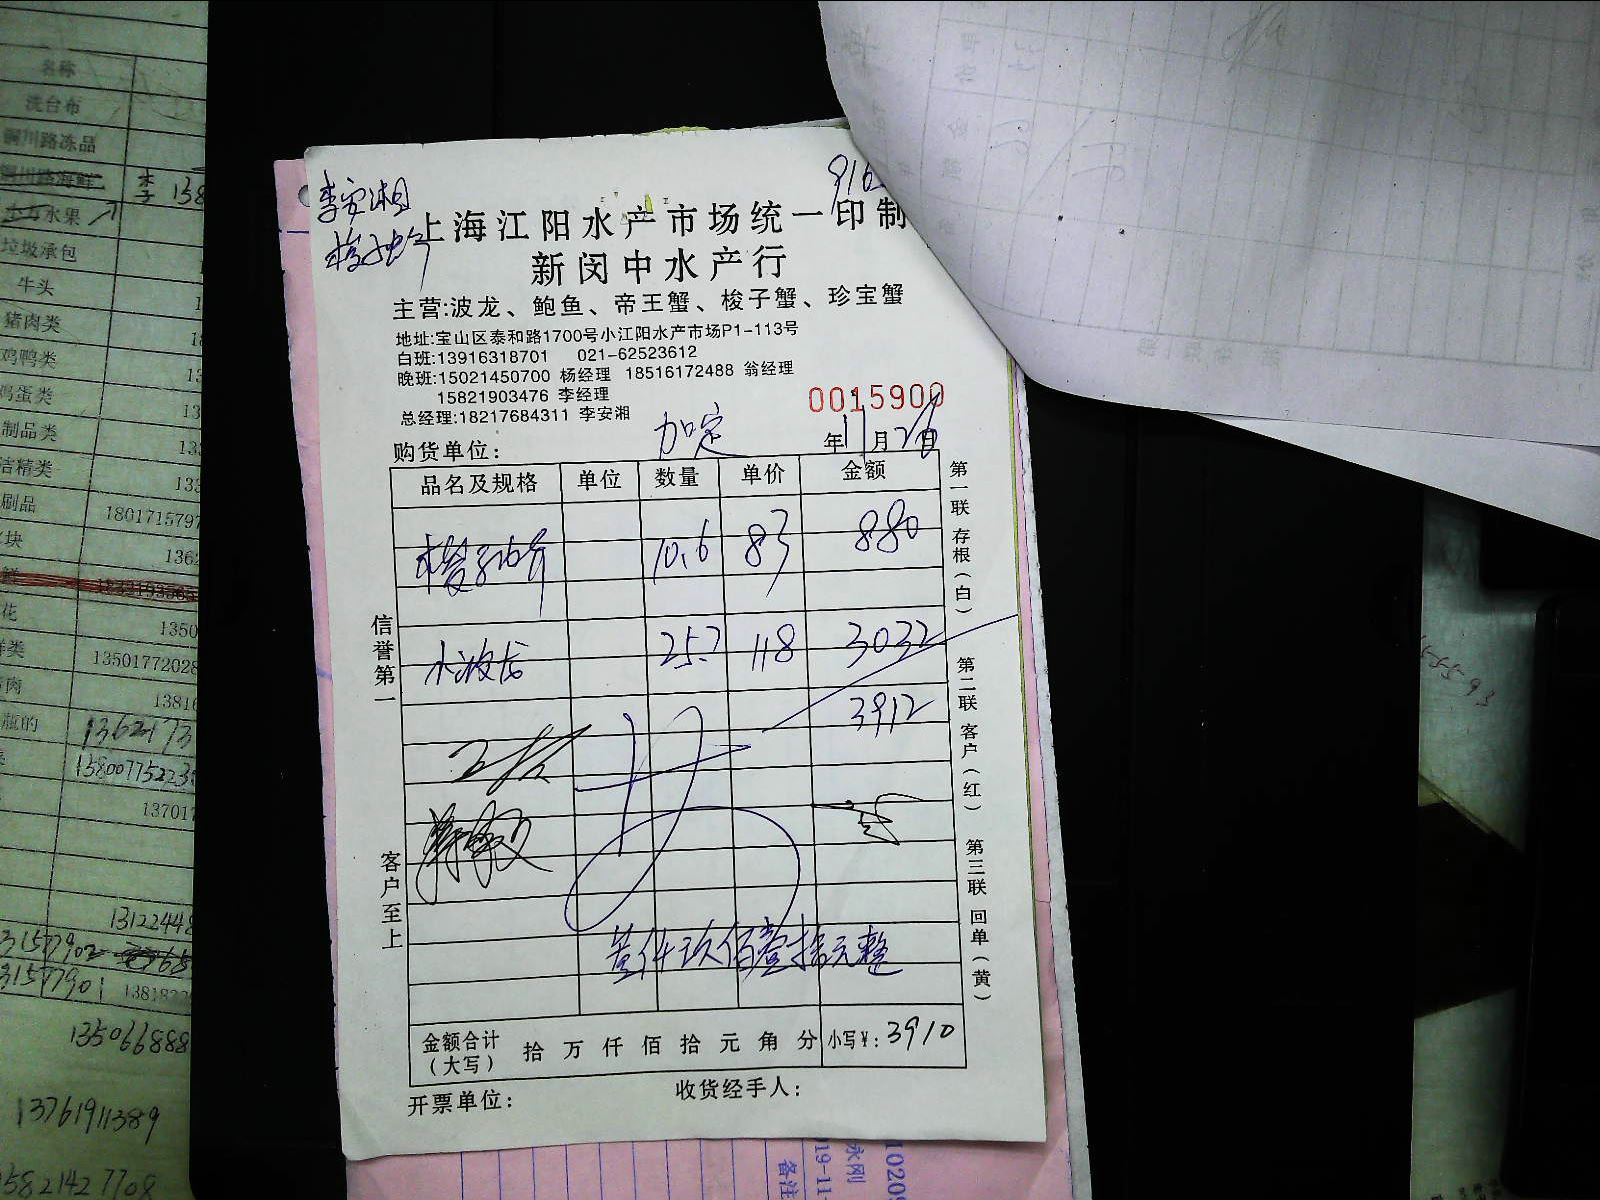 李安湘
梭子蟹
上海江阳水产市场统一印制
新闵中水产行
主营:波龙、鲍鱼、帝王蟹、梭子蟹、珍宝蟹
地址:宝山区泰和路1700号小江阳水产市场P1-113号
白班:13916318701 021-62523612
晚班:15021450700 杨经理 18516172488 翁经理
15821903476 李经理
总经理:18217684311 李安湘
0015900
购货单位: 加定 年11月26日
品名及规格 单位 数量 单价 金额
梭子蟹 10.6 83 880
小波龙 25.7 118 3032
3912
叁仟玖佰壹拾元整
金额合计(大写) 拾 万 仟 佰 拾 元 角 分 小写¥: 3910
开票单位: 收货经手人:
信誉第一
客户至上
第一联 存根(白)
第二联 客户(红)
第三联 回单(黄)
名称
洗台布
铜川路冻品
铜川路海鲜 李 138
水果
垃圾承包
牛头
猪肉类
鸡鸭类
鸡蛋类
制品类
洁精类
刷品 1801715797
块 1362
鲜
花 1350
类 13501772028
肉 13816
瓶的 13621773
1580077522
13701
13122448
31577902
31577901 138182
135066888
13761911389
5821427708
永刚
备注